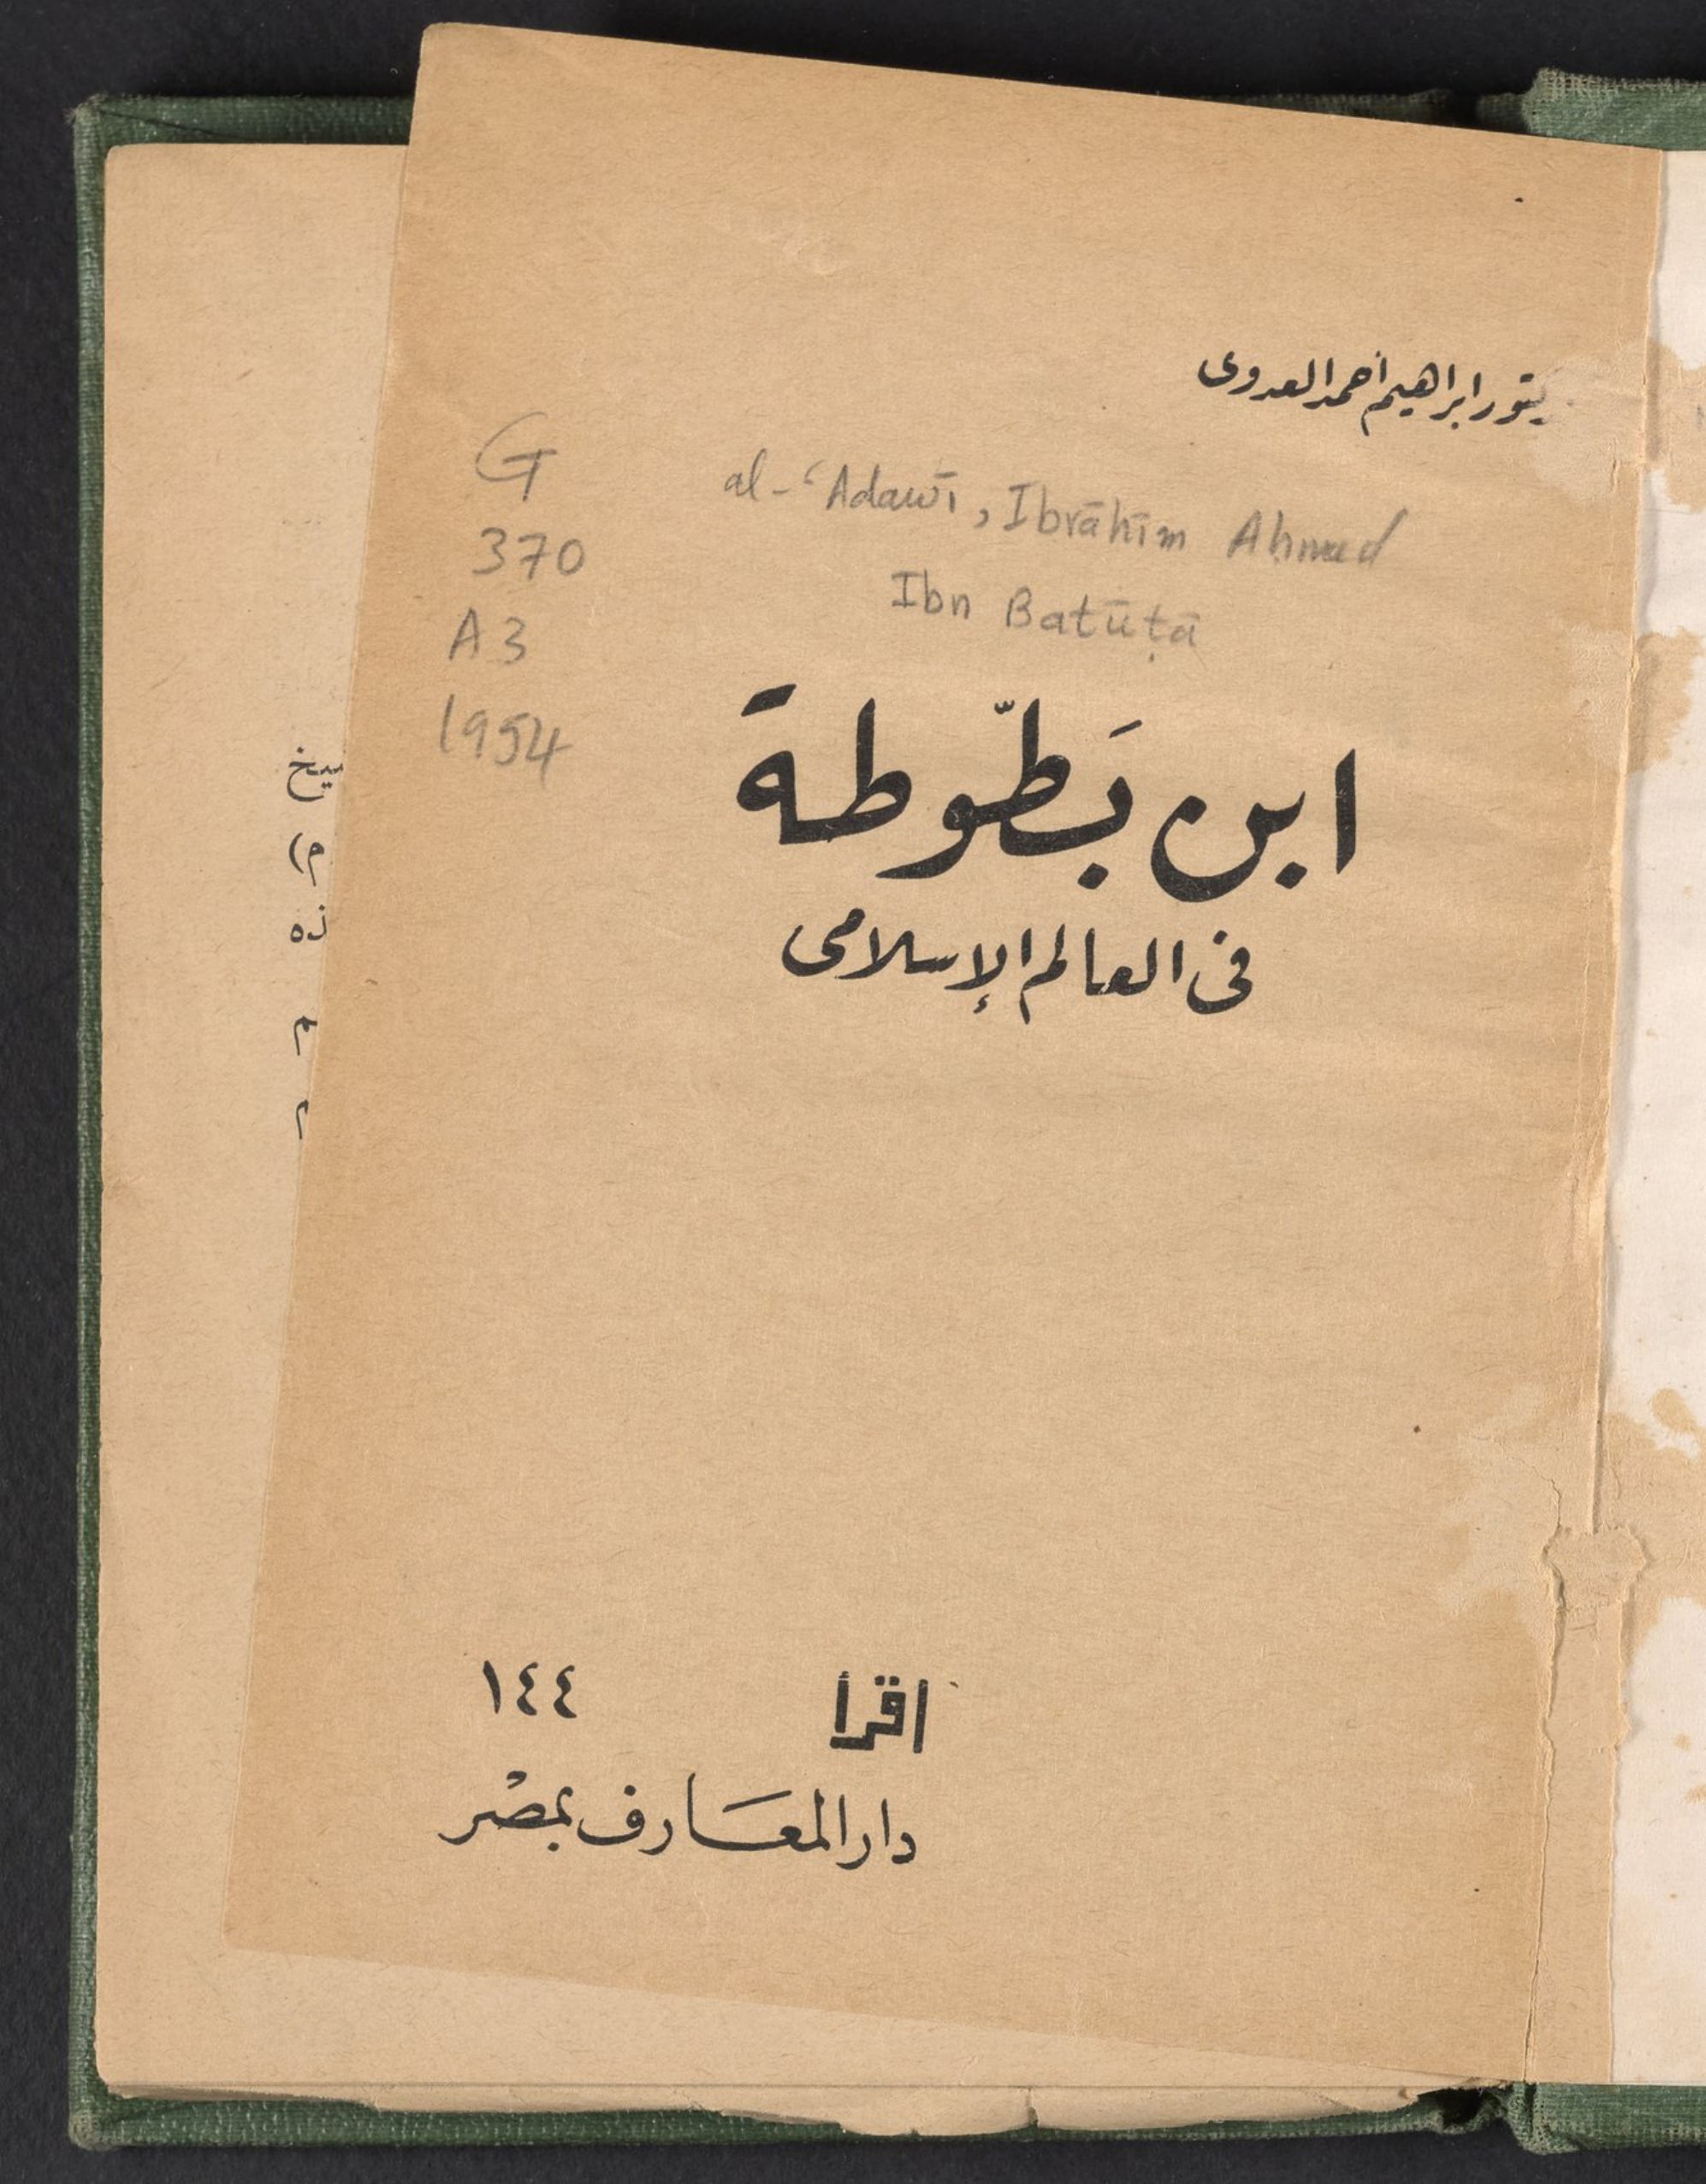 ابراهيم أحمد العدوى
G
370
A3
1954
al-ʿAdawī, Ibrāhīm Ahmed
Ibn Batūṭā
ابن بَطّوطة
فى العالم الإسلامى
اقرأ ١٤٤
دار المعَارف بمصْر